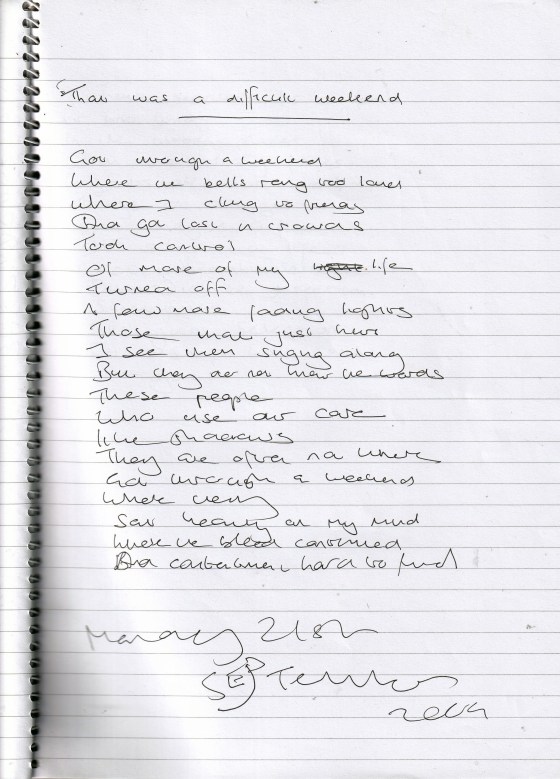 That was a difficult weekend
Got through a weekend
Where the bells rang too loud
Where I clung to friends
And got lost in crowds
Took control
Of more of my life
Turned off
A few more fading lights
Those that just here
I see them singing along
But they do not know the words
These people
Who use our care
like shadows
They are often not there
Got through a weekend
Where
Sat heavy on my mind
Where the blood continued
And contentment hard to find
Monday 21st
September